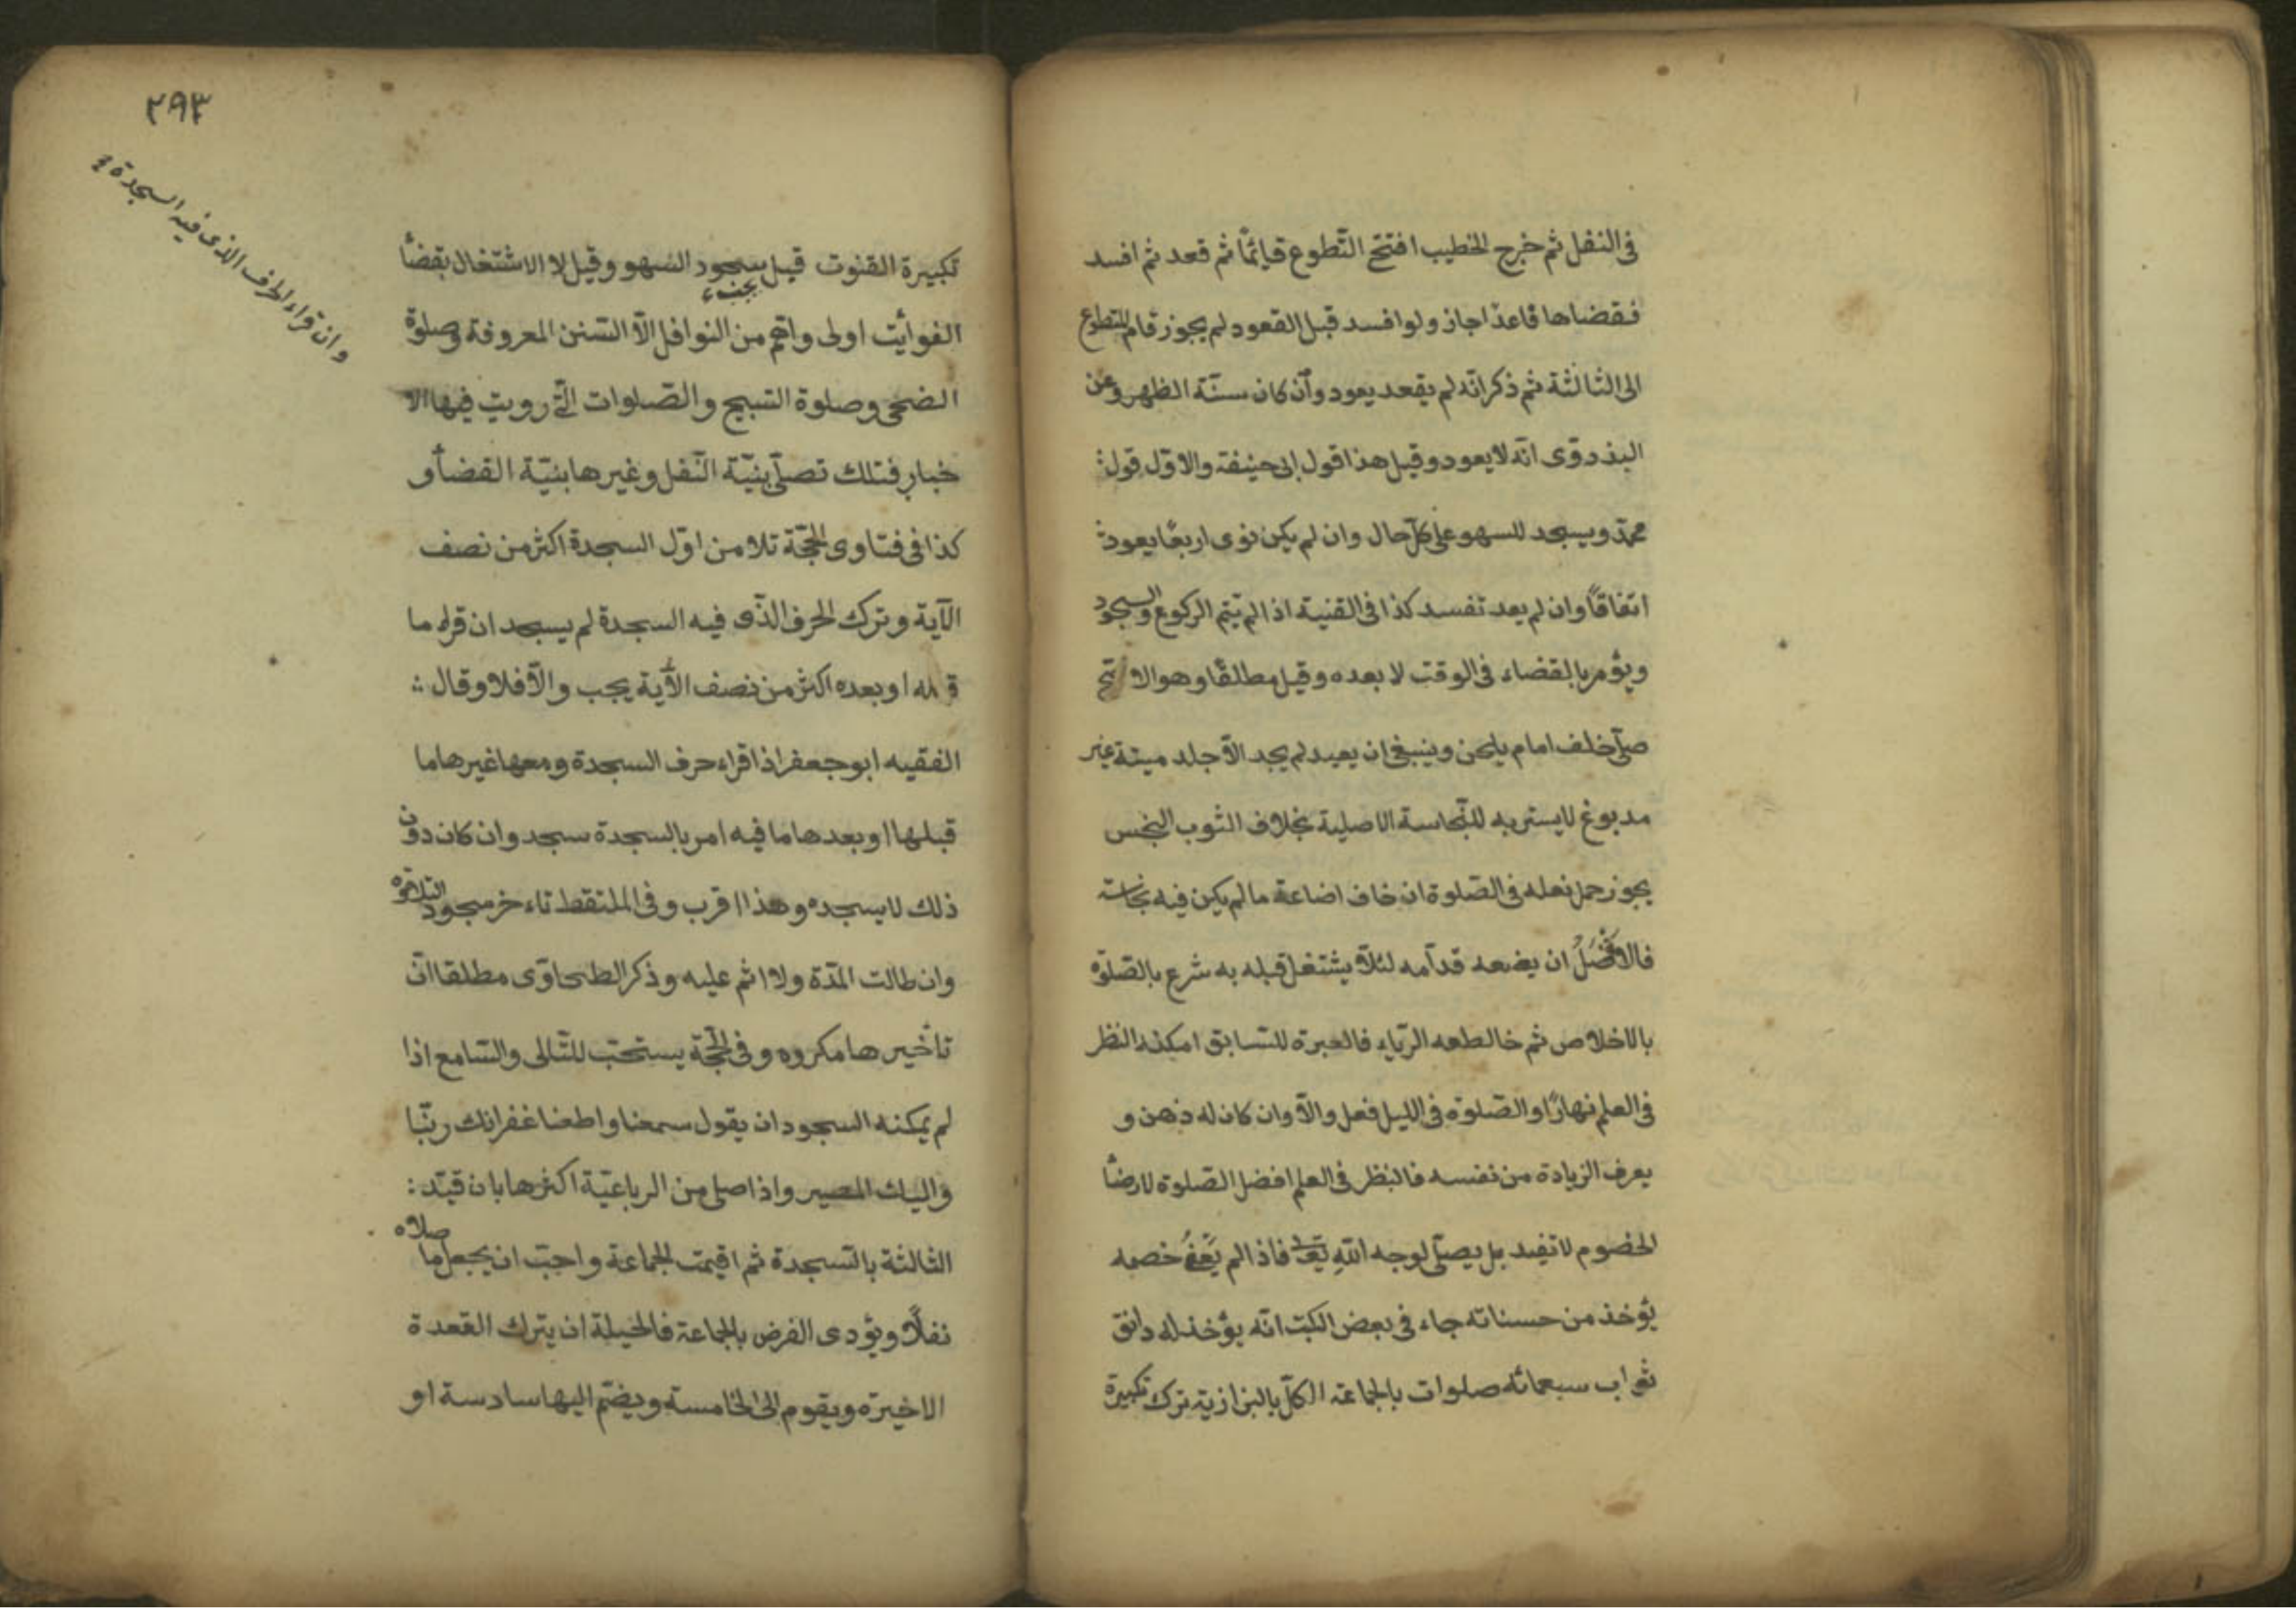 فى النفل ثم خرج الخطيب افتتح التّطوع قائمًا ثم قعد ثم افسد
فقضاها قاعدًا جاز ولو افسد قبل القعود لم يجوز قام المتطوع
الى الثالثة ثم ذكر انّه لم يقعد يعود وان كان سنّة الظهر وعن
البذدوّى انّه لا يعود وقيل هذا قول ابى حنيفة والاوّل قول
محمّد ويسجد للسهو على كلّ حال وان لم يكن نوى اربعًا يعود
اتفاقًا وان لم يعد تفسد كذا فى القنية اذا لم يتم الركوع والسجود
ويؤمر بالقضاء فى الوقت لا بعده وقيل مطلقًا وهو الا تح
صلّى خلف امام يلحن وينبغى ان يعيد لم يجد الّا جلد ميتة غير
مدبوغ لا يستر به للنّجاسة الاصلية بخلاف الثوب النجس
يجوز حمل نعله فى الصّلوة ان خاف اضاعة ما لم يكن فيه نجاسة
فالافْضَلُ ان يضعه قدّامه لئلّا يشتغل قبله به شرع بالصّلوة
بالاخلاص ثم خالطعه الرّياء فالعبرة للسّابق امكنه النظر
فى العلم نهارًا والصّلوة فى الليل فعل والّا وان كان له ذهن و
يعرف الزيادة من نفسه فالنظر فى العلم افضل الصّلوة لارضاء
الخصوم لا تفيد بل يصلّى لوجه اللّه تعالى فاذا لم يَعْفُ خصمه
يؤخذ من حسناته جاء فى بعض الكتب انّه يؤخذ له دانق
ثواب سبعمائه صلوات بالجماعة الكلّ بالبزازية ترك تكبيرة
٢٩٣
وان قراء الحرف الذى فيه السجدة
تكبيرة القنوت قيل يجب سجود السهو وقيل لا الاشتغال بقضاء
الفوائت اولى واهم من النوافل الّا السّنن المعروفة وصلوة
الضحى وصلوة التسبيح والصّلوات الّتى رويت فيها الا
خبار فتلك تصلّى بنيّة النّفل وغيرها بنيّة القضاء و
كذا فى فتاوى الحجّة تلا من اوّل السجدة اكثر من نصف
الآية وترك الحرف الّذى فيه السجدة لم يسجد ان قراء ما
قبله او بعده اكثر من نصف الآية يجب والّا فلا وقال
الفقيه ابو جعفر اذا قراء حرف السجدة ومعها غيرها ما
قبلها او بعدها ما فيه امر بالسجدة سجد وان كان دون
ذلك لا يسجده وهذا اقرب وفى الملتقط تاء خر سجود التلاوة
وان طالت المدّة ولا اثم عليه وذكر الطحاوّى مطلقا انّ
تاخيرها مكروه وفى الحجّة يستحبّ للتّالى والسّامع اذا
لم يمكنه السجود ان يقول سمعنا واطعنا غفرانك ربّنا
واليك المصير واذا صلى من الرباعيّة اكثرها بان قيّد
الثالثة بالسّجدة ثم اقيمت الجماعة واحبّ ان يجعل ما صلاه
نفلًا ويؤدى الفرض بالجماعة فالحيلة ان يترك القعدة
الاخيرة ويقوم الى الخامسة ويضمّ اليها سادسة او